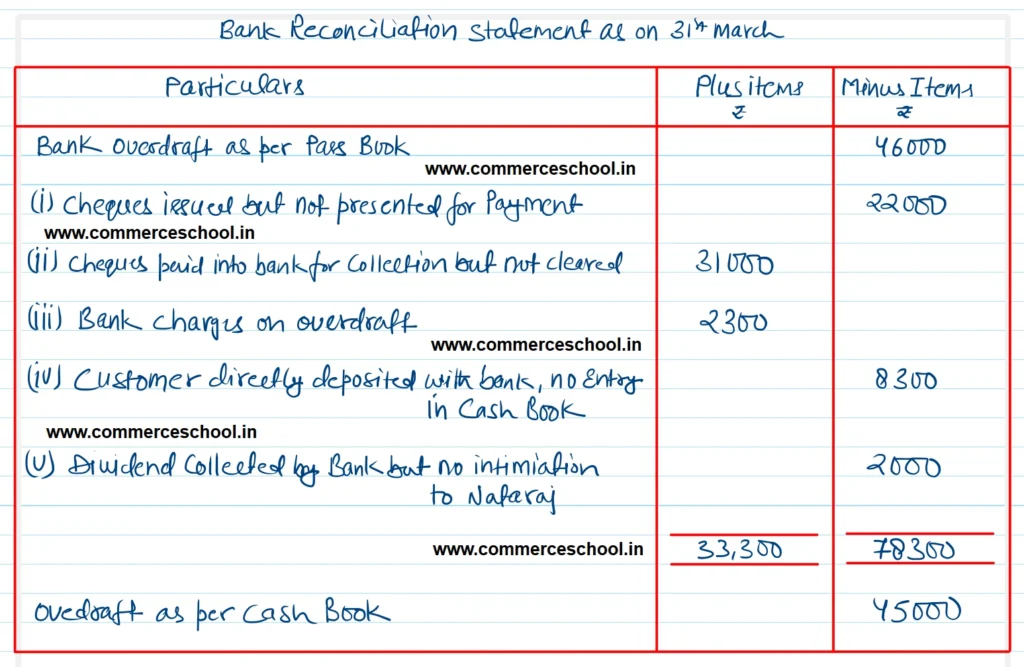 Bank Reconciliation Statement as on 31st March
Particulars Plus items Minus Items
₹ ₹
Bank Overdraft as per Pass Book 46000
www.commerceschool.in
(i) Cheques issued but not presented for Payment 22000
www.commerceschool.in
(ii) Cheques paid into bank for Collection but not cleared 31000
(iii) Bank Charges on overdraft 2300
www.commerceschool.in
(iv) Customer directly deposited with bank, no Entry 8300
in Cash Book
www.commerceschool.in
(v) Dividend Collected by Bank but no intimiation 2000
to Nataraj
www.commerceschool.in 33,300 78300
Ovedraft as per Cash Book 45000